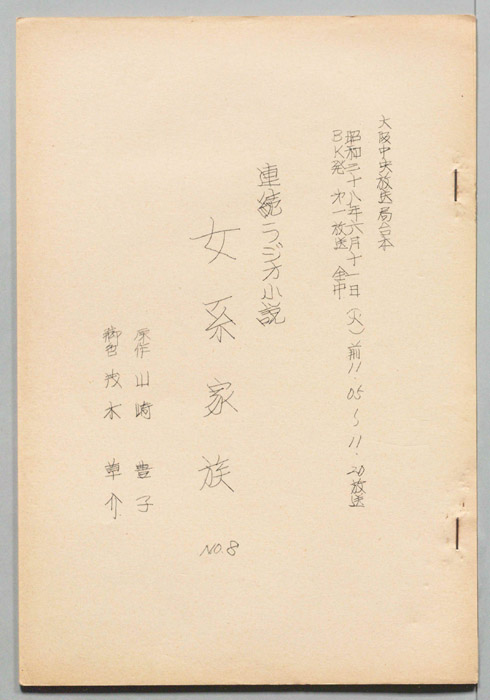 大阪中央放送局台本
昭和三十八年六月十一日（火）前11.05〜11.20放送
BK発 第一放送 全中
連続ラジオ小説
女系家族
NO.8
原作 山崎 豊子
脚色 茂木 草介